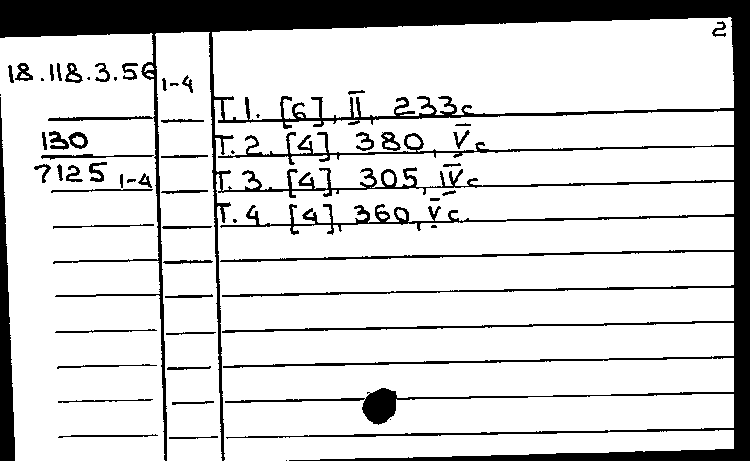 2
18.118.3.56 1-4
T.1. [6], II, 233c.
130
T.2. [4], 380, Vc.
7125 1-4
T.3. [4], 305, IVc.
T.4. [4], 360, Vc.